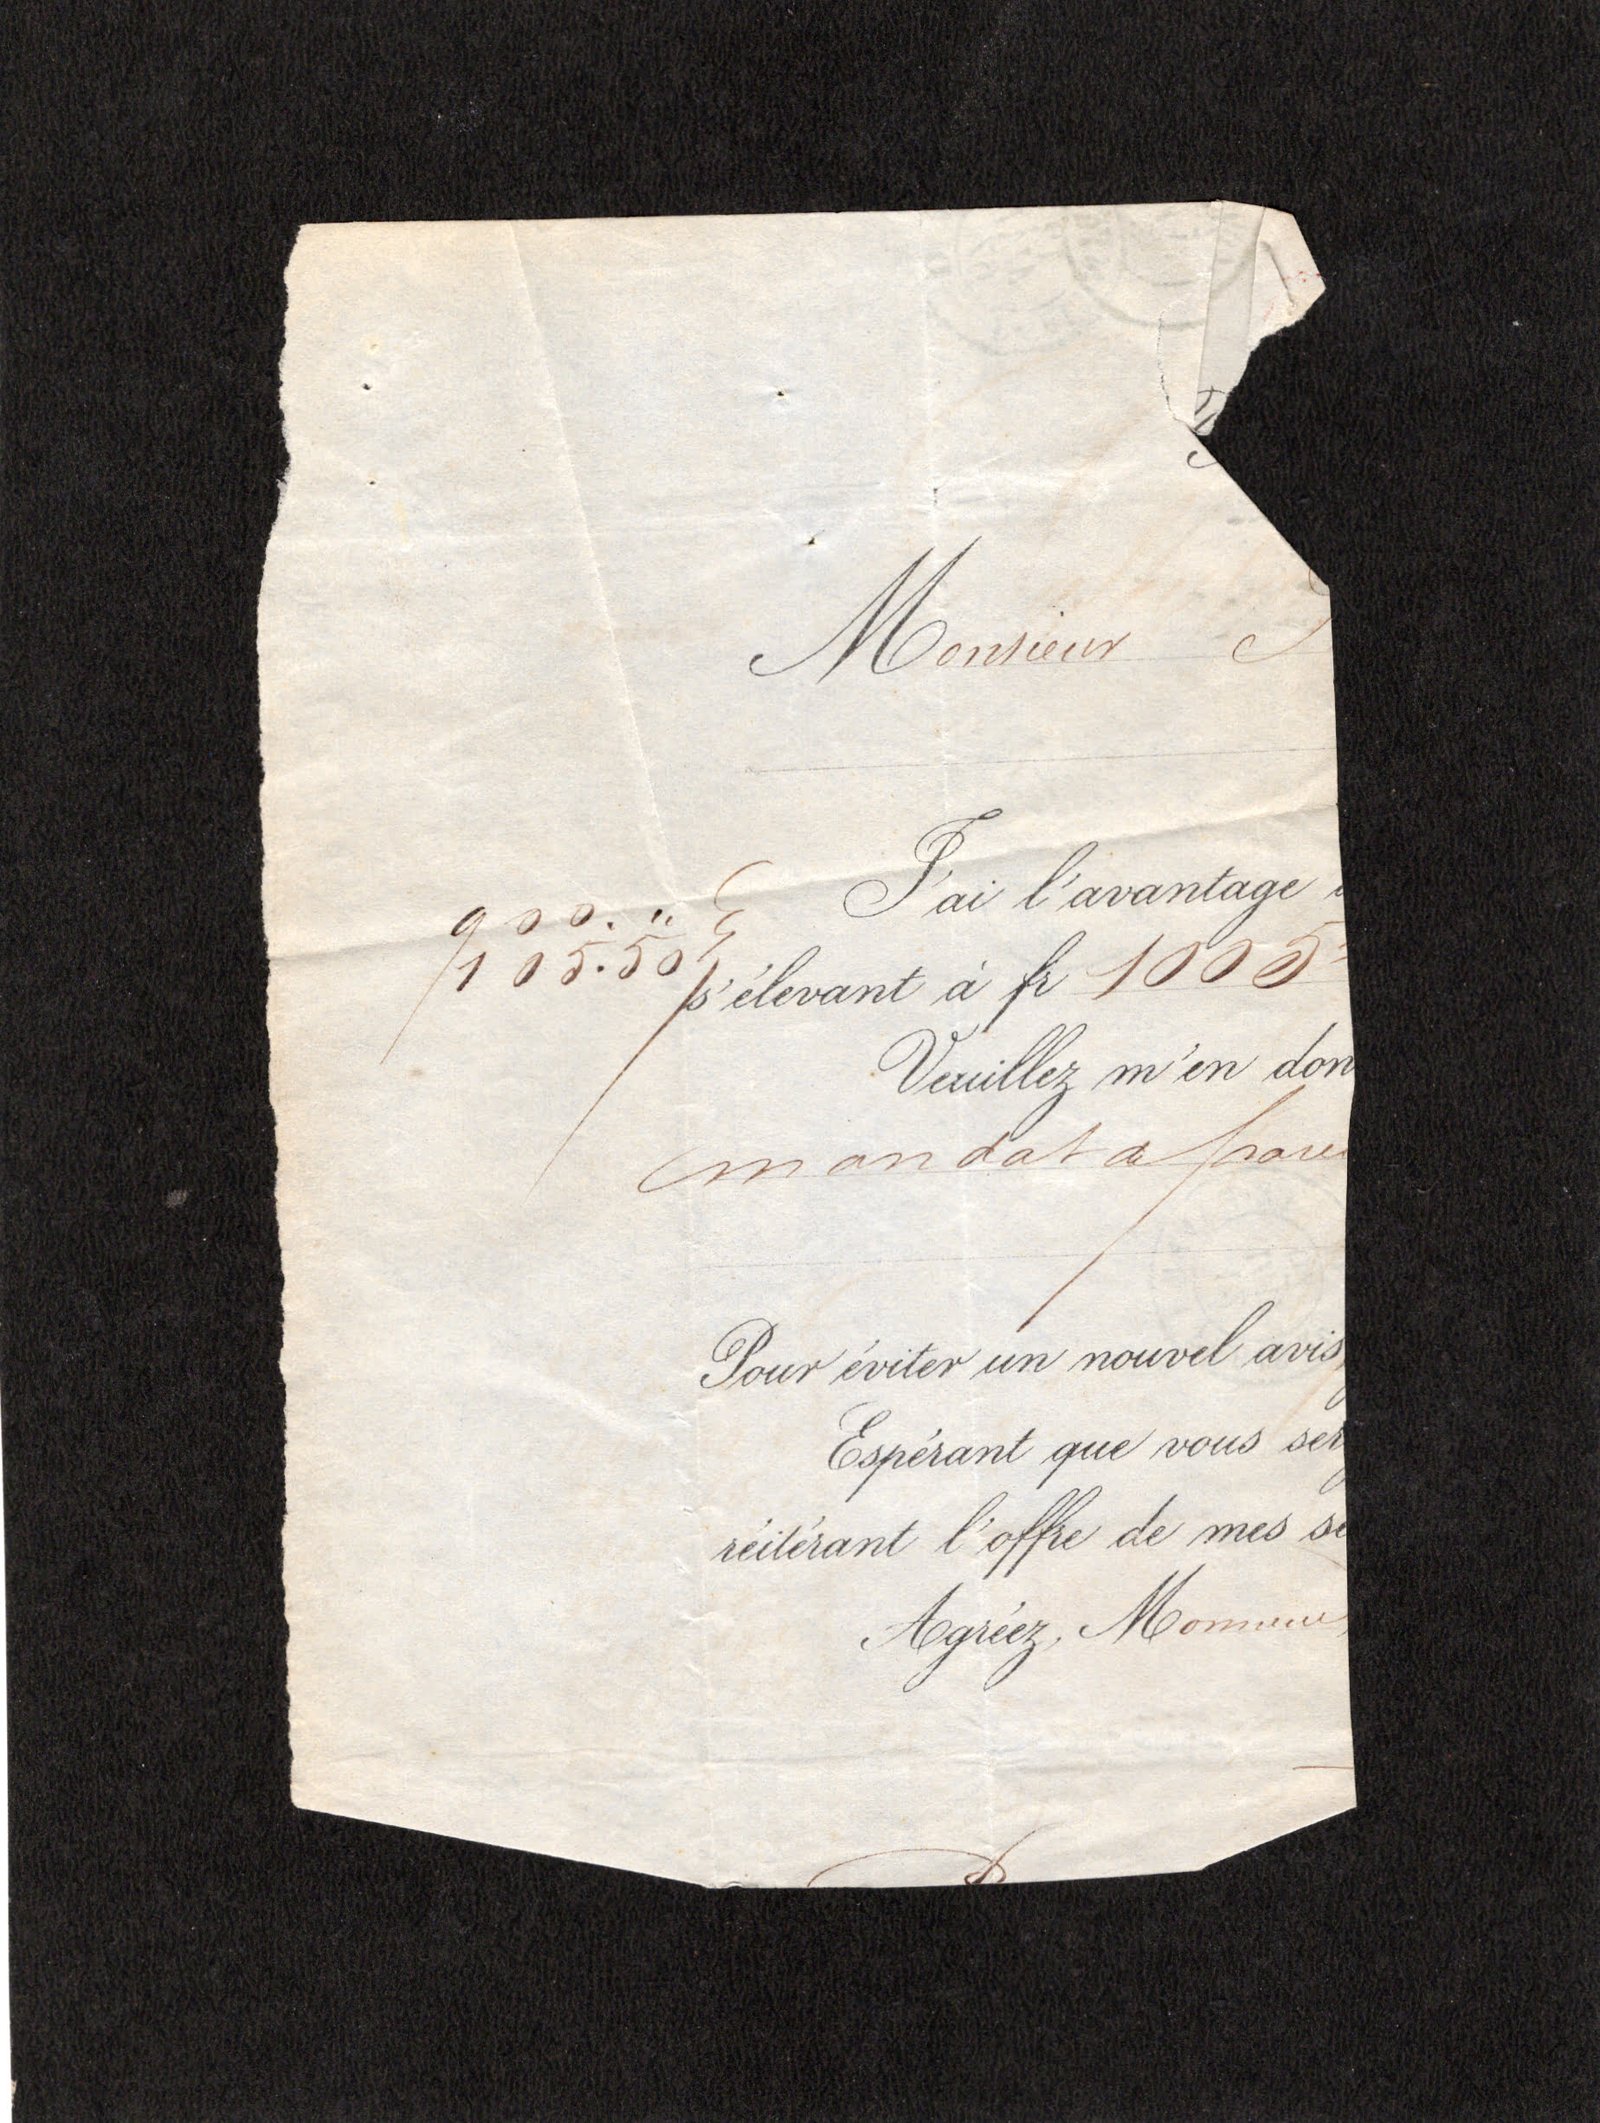 Monsieur
J'ai l'avantage
900. "
105.50
s'élevant à fr 1005
Veuillez m'en don
mandat a
Pour éviter un nouvel avis,
Espérant que vous ser
réitérant l'offre de mes se
Agréez, Monsieur,